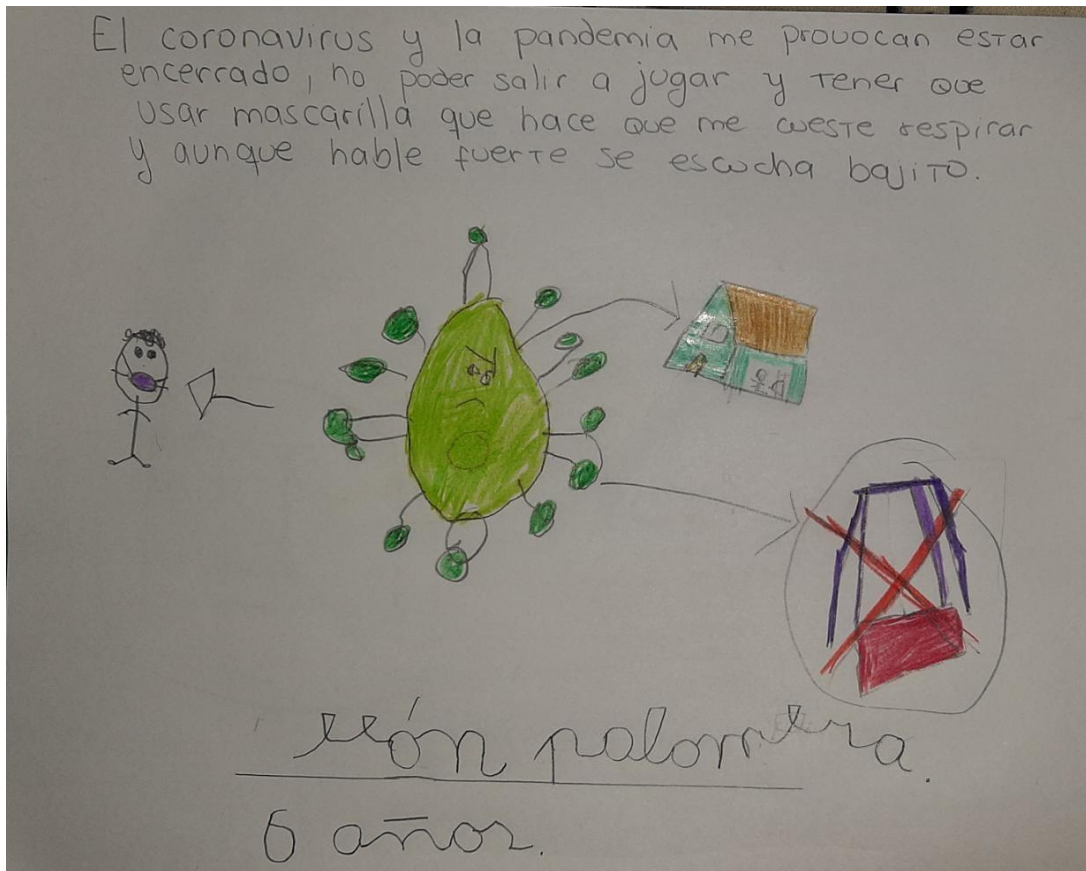 El coronavirus y la pandemia me provocan estar
encerrado, no poder salir a jugar y tener que
usar mascarilla que hace que me cueste respirar
y aunque hable fuerte se escucha bajito.
palomera.
6 años.